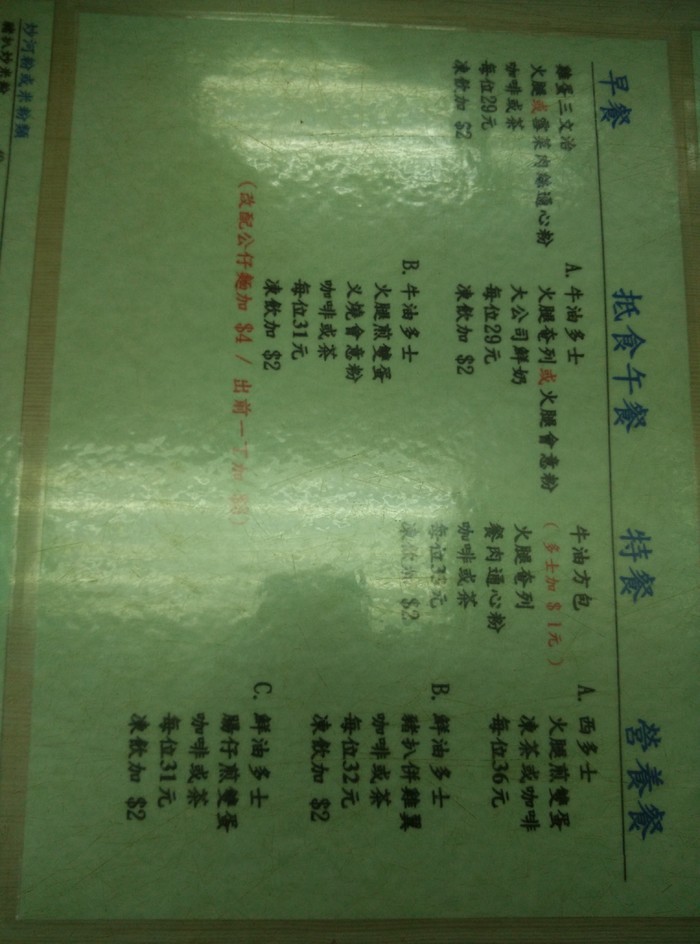 早餐
雞蛋三文治
火腿或雪菜肉絲通心粉
咖啡或茶
每位29元
凍飲加 $2
抵食午餐
A. 牛油多士
火腿奄列或火腿會意粉
大公司鮮奶
每位29元
凍飲加 $2
B. 牛油多士
火腿煎雙蛋
叉燒會意粉
咖啡或茶
每位31元
凍飲加 $2
(改配公仔麵加 $4 / 出前一丁加 )
特餐
牛油方包
(多士加 $1元)
火腿奄列
餐肉通心粉
咖啡或茶
每位33元
凍飲加 $2
營養餐
A. 西多士
火腿煎雙蛋
凍茶或咖啡
每位36元
B. 鮮油多士
豬扒併雞翼
咖啡或茶
每位32元
凍飲加 $2
C. 鮮油多士
腸仔煎雙蛋
咖啡或茶
每位31元
凍飲加 $2
炒河粉或米粉類
豬扒炒米粉